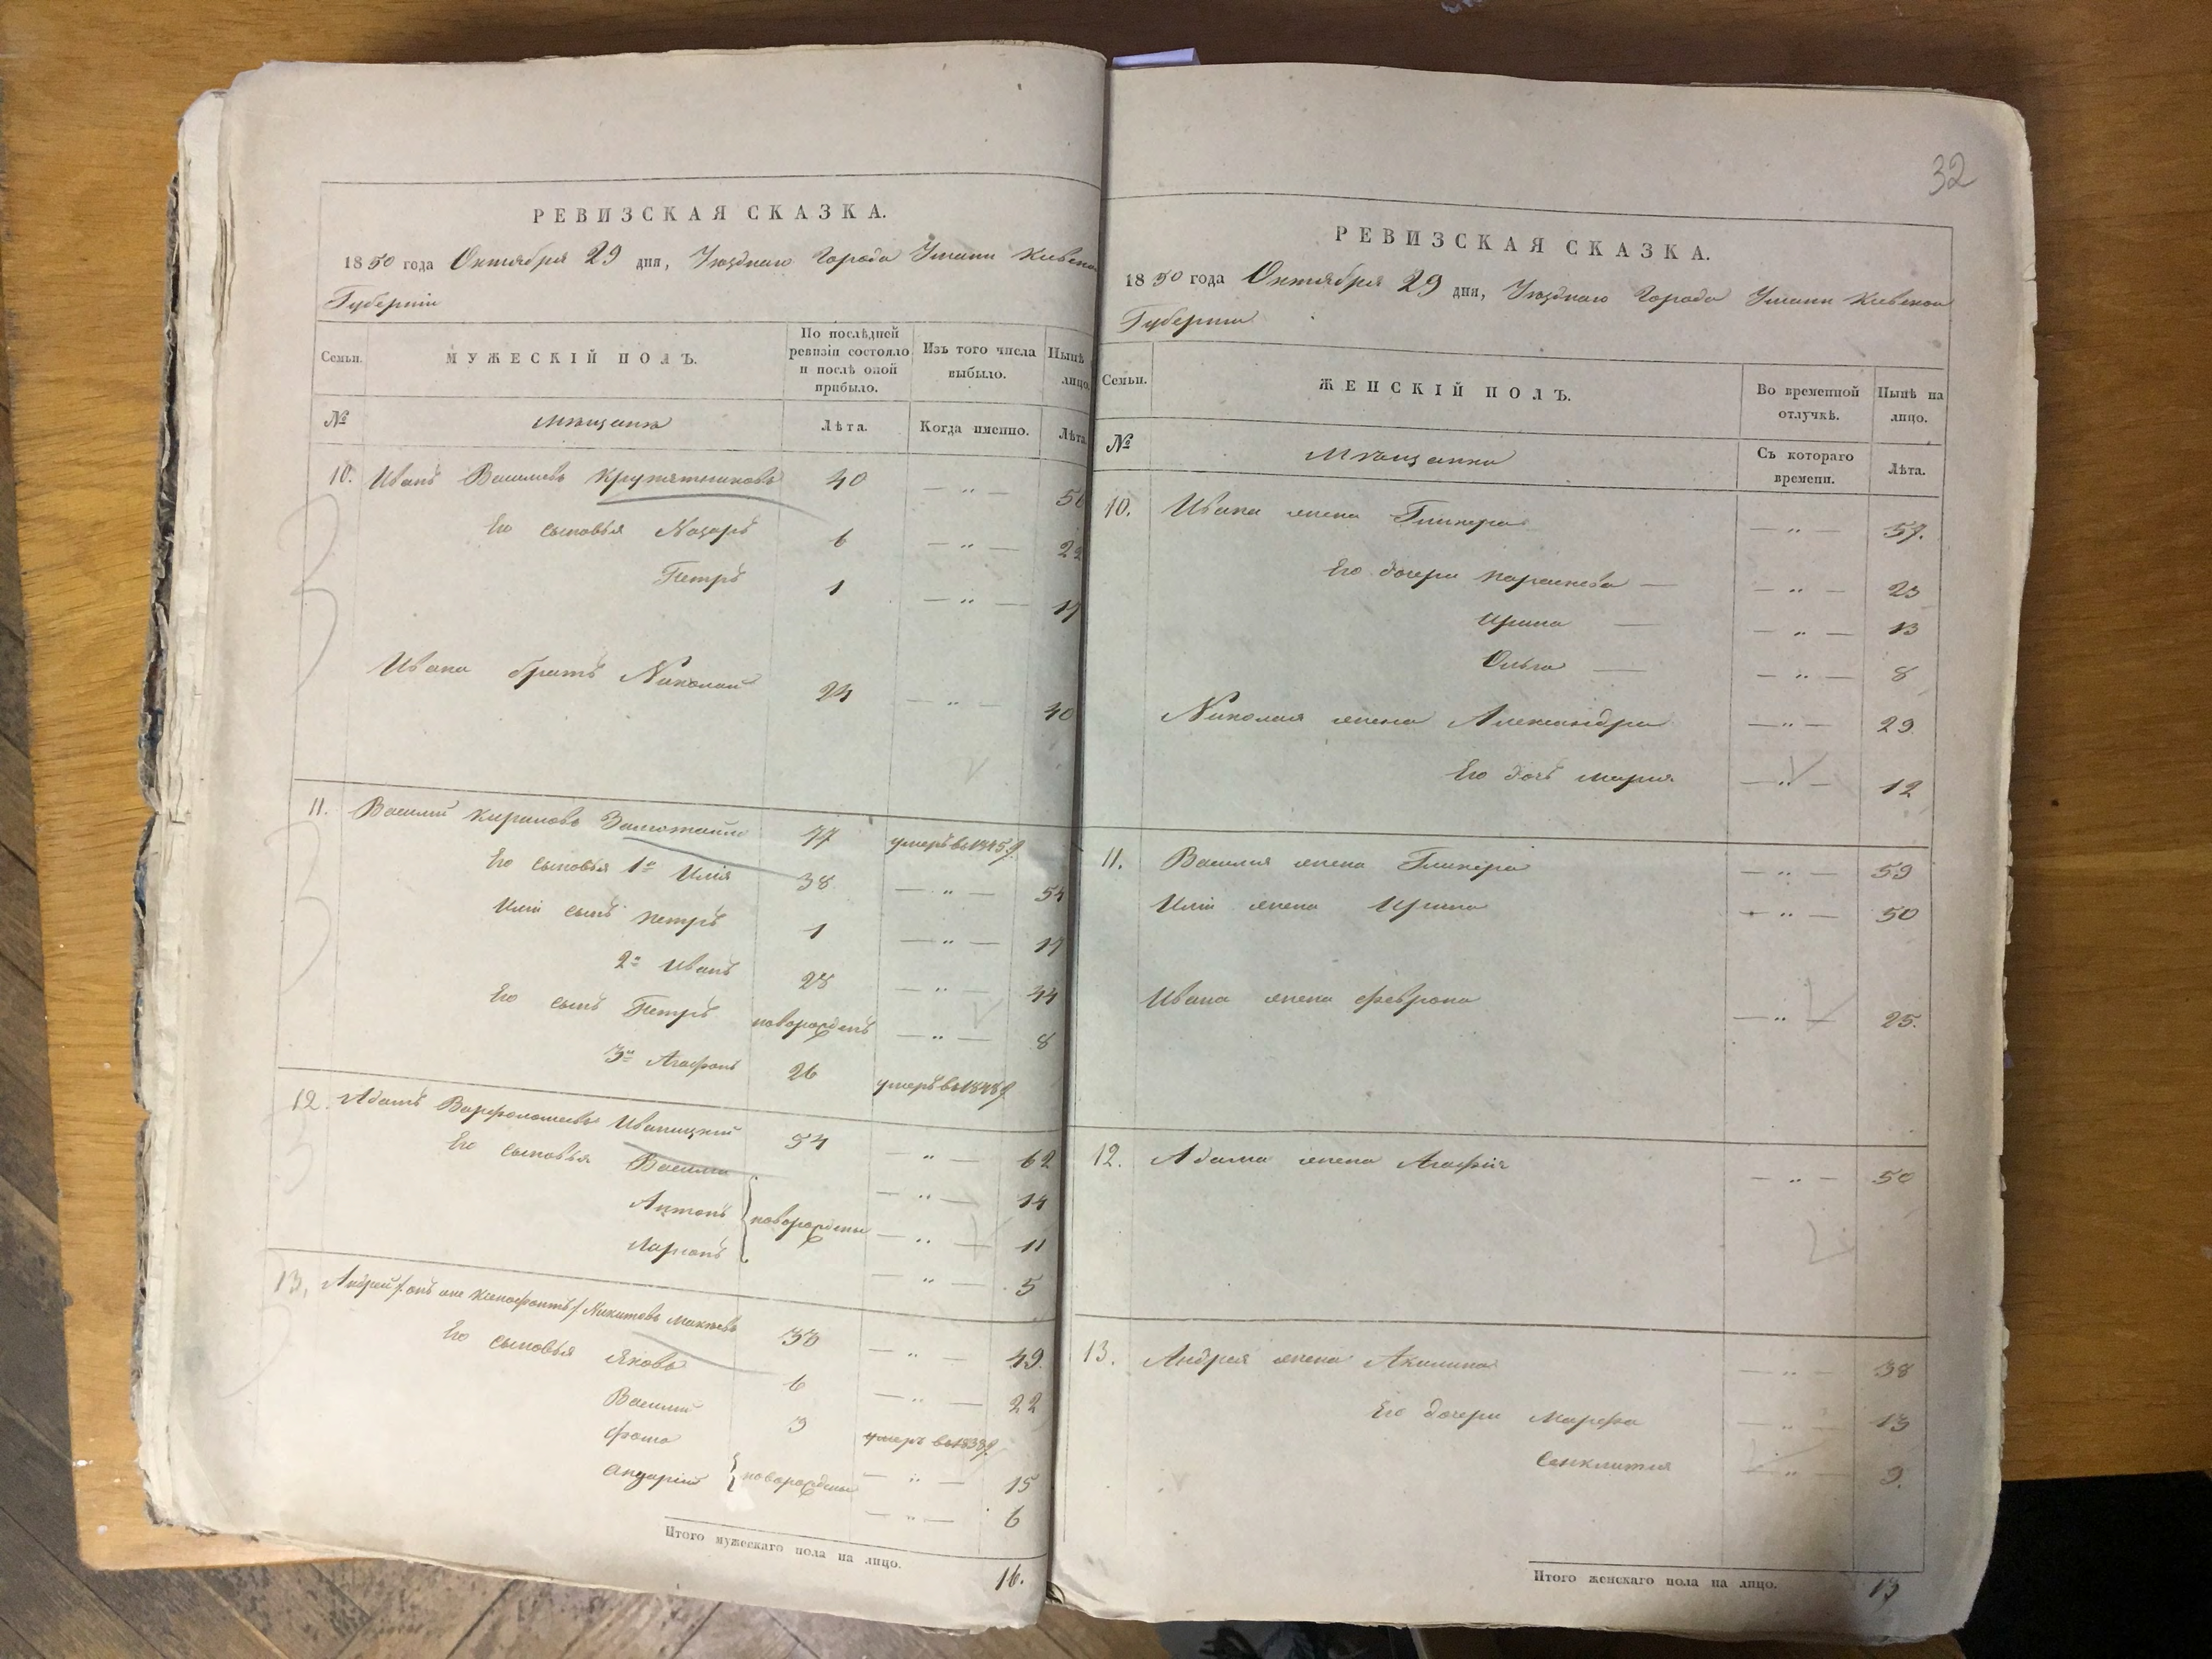 РЕВИЗСКАЯ СКАЗКА.
1850 года Октября 29 дня, Уѣзднаго Города Умани Кіевской
Губерніи
Семьи. МУЖЕСКІЙ ПОЛЪ. По послѣдней ревизіи состояло и послѣ оной прибыло. Изъ того числа выбыло. Нынѣ лицо.
№ Мѣщане Лѣта. Когда именно. Лѣта.
10. Иванъ Васильевъ Крупятниковъ 40 — „ — 56
Его сыновья Назаръ 6 — „ — 22
Петръ 1 — „ — 17
Ивана братъ Николай 24 — „ — 40
11. Василий Кириловъ 77 умеръ въ 1845 г.
Его сыновья 1й Илія 38 — „ — 54
Иліи сынъ Петръ 1 — „ — 17
2й Иванъ 28 — „ — 44
Его сынъ Петръ новорожденъ — „ — 8
3й Агафонъ 26 умеръ въ 1848 г.
12. Адамъ Варфоломеевъ Иваницкий 54 — „ — 62
Его сыновья Василий — „ — 14
Антонъ новорождены — „ — 11
Ларионъ — „ — 5
13. Андрей /онъ же Ксенофонтъ/ Никитовъ 33 — „ — 49.
Его сыновья Яковъ 6 — „ — 22
Василий 3 умеръ въ 1838 г.
Фома — „ — 15
новорождены — „ — 6
Итого мужескаго пола на лицо. 16.
32
РЕВИЗСКАЯ СКАЗКА.
1850 года Октября 29 дня, Уѣзднаго Города Умани Кіевской
Губерніи
Семьи. ЖЕНСКІЙ ПОЛЪ. Во временной отлучкѣ. Нынѣ на лицо.
№ Мѣщанки Съ котораго времени. Лѣта.
10. Ивана жена Гликера — „ — 57.
Его дочери Параскева — — „ — 23
Ирина — — „ — 13
Ольга — — „ — 8
Николая жена Александра — „ — 29.
Его дочь Мария — „ — 12
11. Василия жена Гликера — „ — 59
Иліи жена Ирина — „ — 50
Ивана жена Феврона — „ — 25.
12. Адама жена Агафія — „ — 50
13. Андрея жена Акилина — „ — 38
Его дочери Марфа — „ — 13
Синклитія — „ — 9.
Итого женскаго пола на лицо. 13